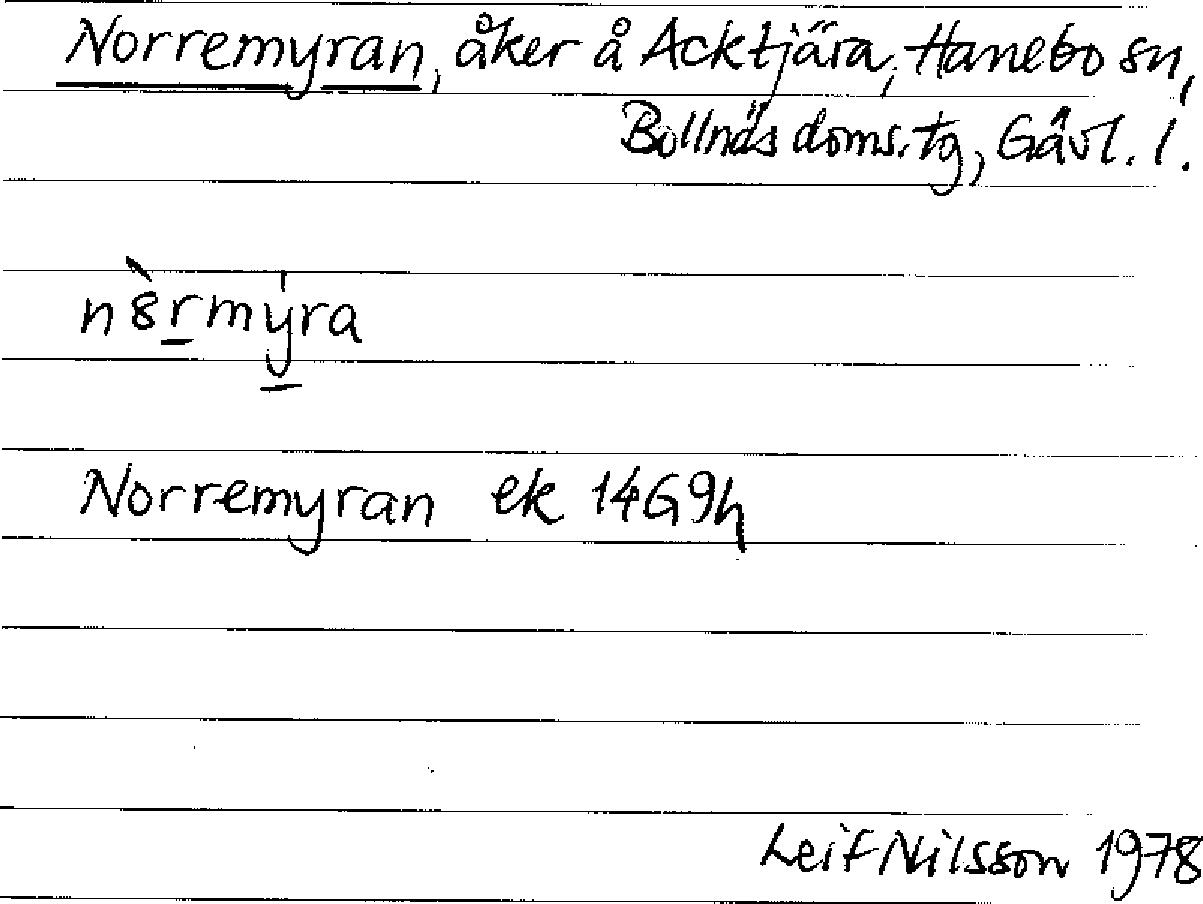 Norremyran, åker å Acktjära, Hanebo sn,
Bollnäs doms.tg, Gävl. l.
Norremyran ek 14G9h
Leif Nilsson 1978